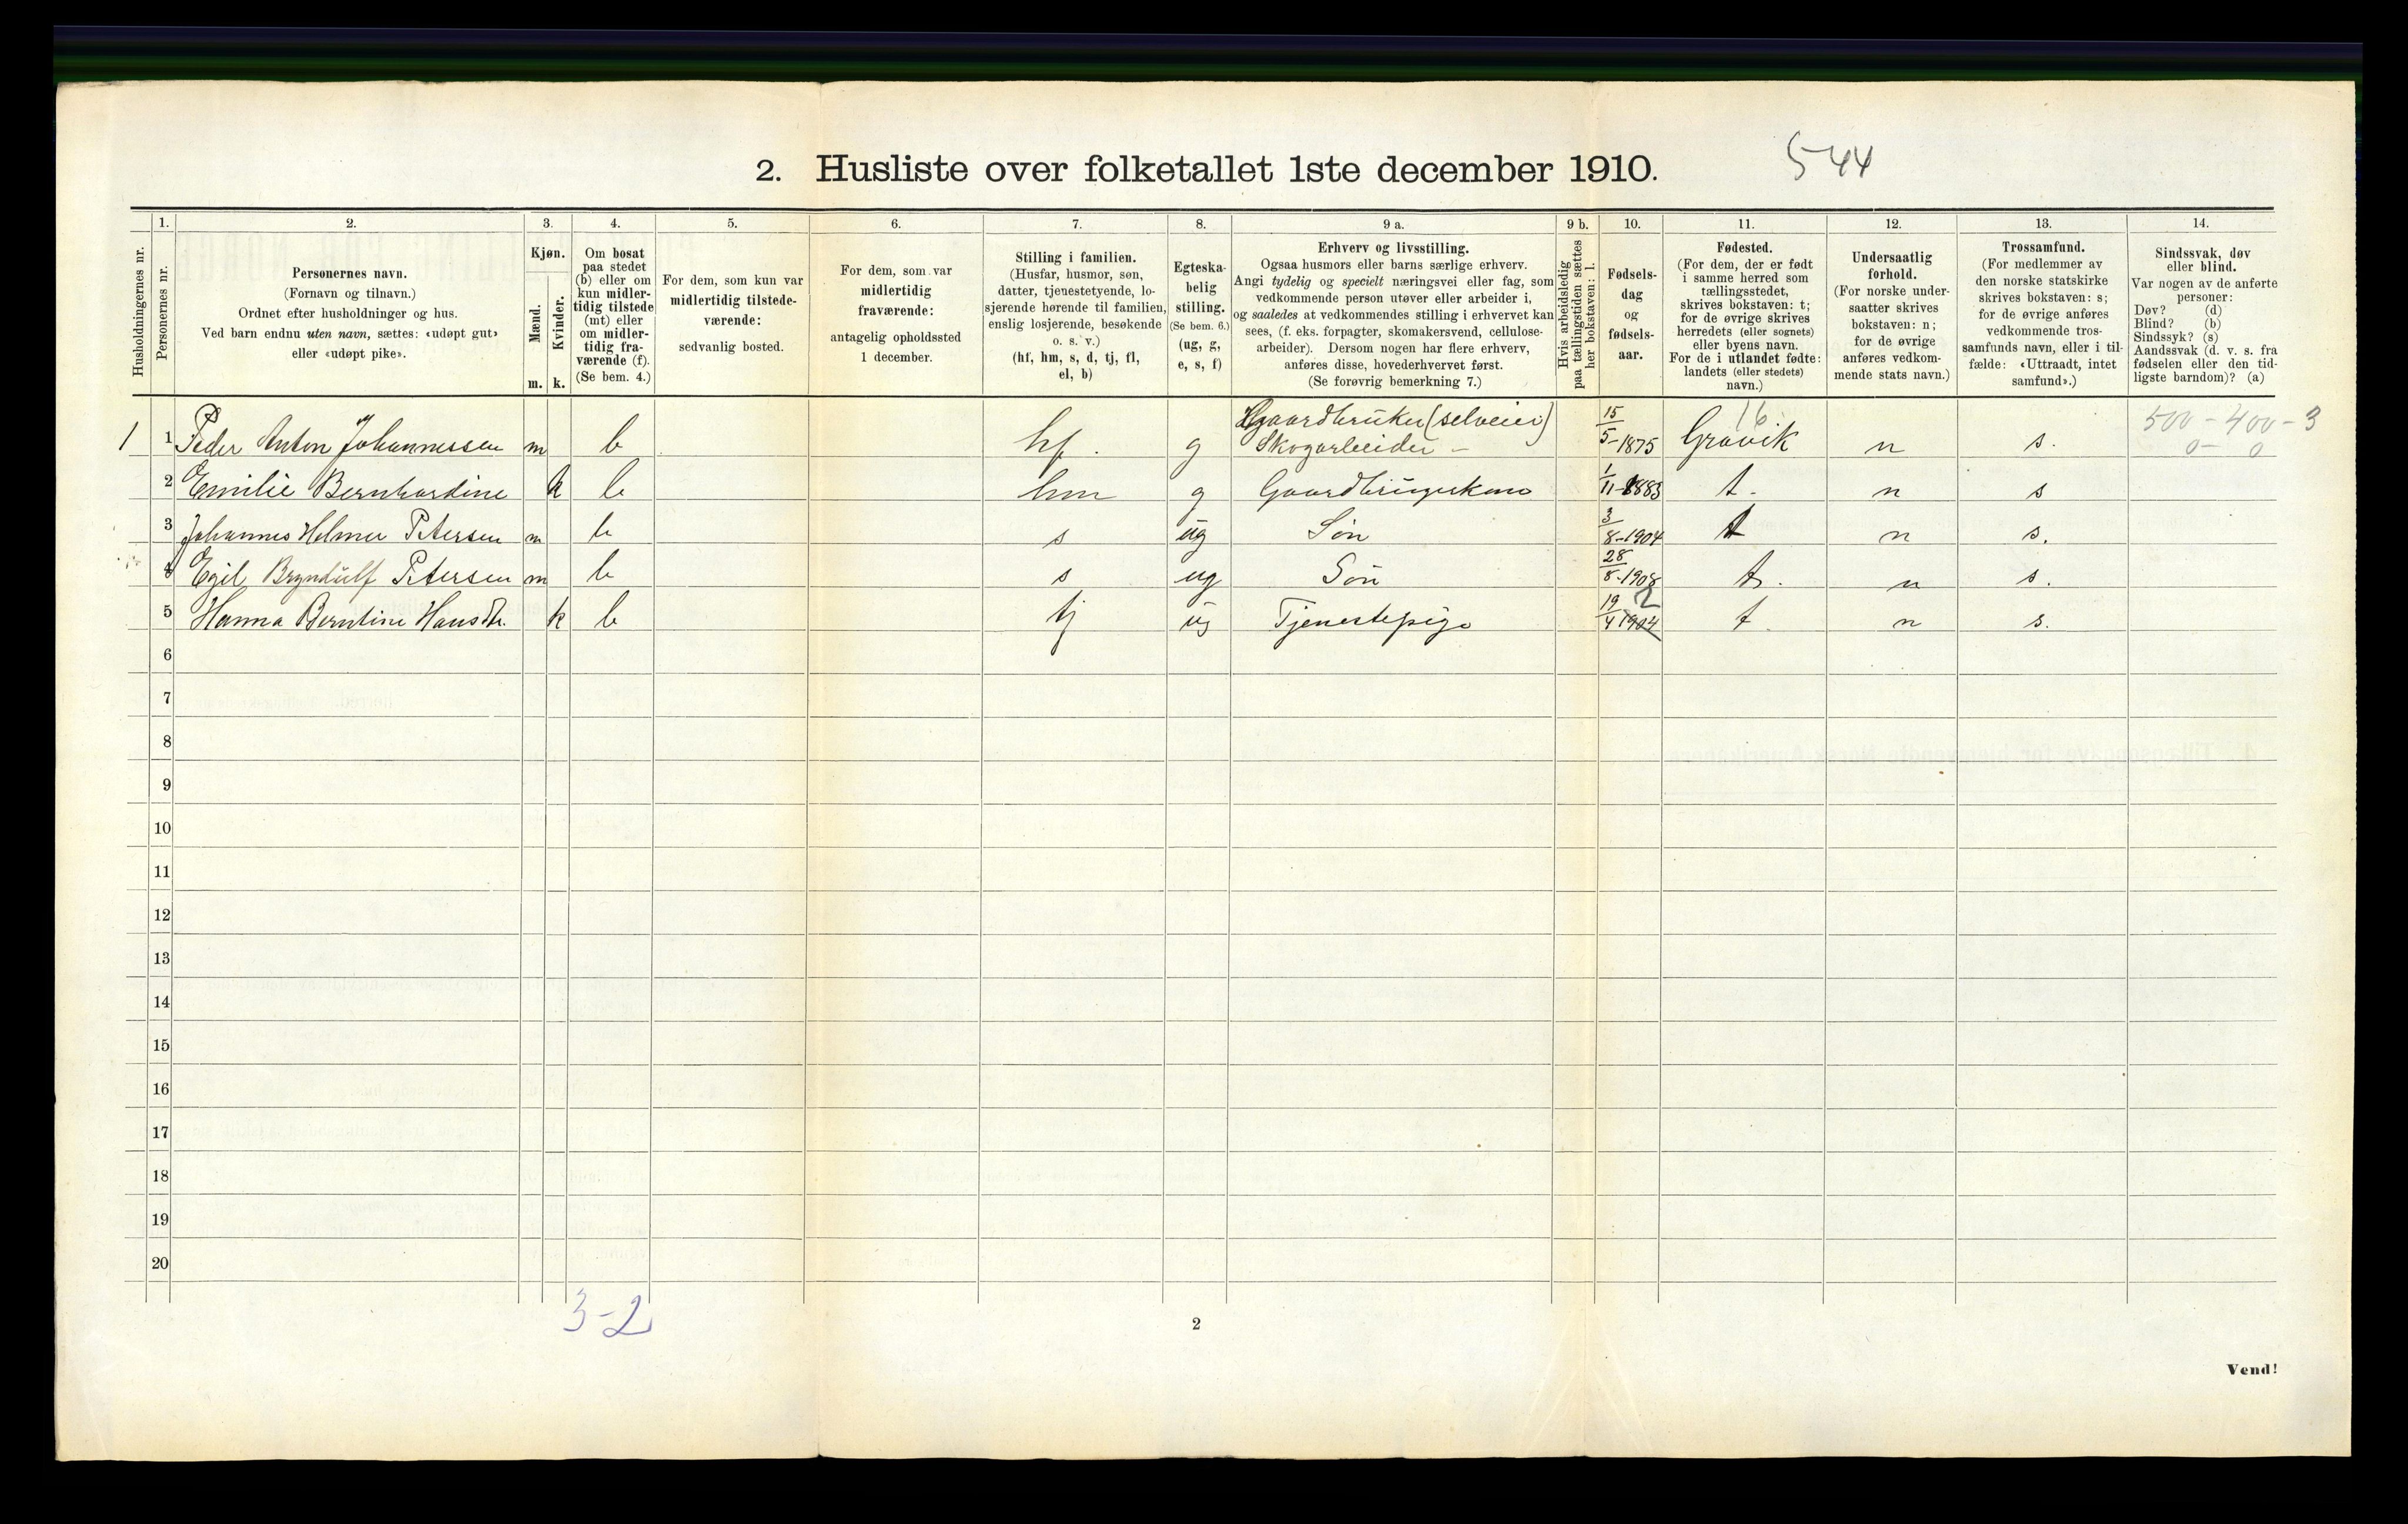 2. Husliste over folketallet 1ste december 1910.
544
Husholdningernes nr.
1.
Personernes nr.
2.
Personernes navn.
(Fornavn og tilnavn.)
Ordnet efter husholdninger og hus.
Ved barn endnu uten navn, sættes: «udøpt gut»
eller «udøpt pike».
3.
Kjøn.
Mænd.
Kvinder.
m. k.
4.
Om bosat
paa stedet
(b) eller om
kun midler-
tidig tilstede
(mt) eller
om midler-
tidig fra-
værende (f).
(Se bem. 4.)
5.
For dem, som kun var
midlertidig tilstede-
værende:
sedvanlig bosted.
6.
For dem, som var
midlertidig
fraværende:
antagelig opholdssted
1 december.
7.
Stilling i familien.
(Husfar, husmor, søn,
datter, tjenestetyende, lo-
sjerende hørende til familien,
enslig losjerende, besøkende
o. s. v.)
(hf, hm, s, d, tj, fl,
el, b)
8.
Egteska-
belig
stilling.
(Se bem. 6.)
(ug, g,
e, s, f)
9 a.
Erhverv og livsstilling.
Ogsaa husmors eller barns særlige erhverv.
Angi tydelig og specielt næringsvei eller fag, som
vedkommende person utøver eller arbeider i,
og saaledes at vedkommendes stilling i erhvervet kan
sees, (f. eks. forpagter, skomakersvend, cellulose-
arbeider). Dersom nogen har flere erhverv,
anføres disse, hovederhvervet først.
(Se forøvrig bemerkning 7.)
9 b.
Hvis arbeidsledig
paa tællingstiden sættes
her bokstaven: l.
10.
Fødsels-
dag
og
fødsels-
aar.
11.
Fødested.
(For dem, der er født
i samme herred som
tællingsstedet,
skrives bokstaven: t;
for de øvrige skrives
herredets (eller sognets)
eller byens navn.
For de i utlandet fødte:
landets (eller stedets)
navn.)
12.
Undersaatlig
forhold.
(For norske under-
saatter skrives
bokstaven: n;
for de øvrige
anføres vedkom-
mende stats navn.)
13.
Trossamfund.
(For medlemmer av
den norske statskirke
skrives bokstaven: s;
for de øvrige anføres
vedkommende tros-
samfunds navn, eller i til-
fælde: «Uttraadt, intet
samfund».)
14.
Sindssvak, døv
eller blind.
Var nogen av de anførte
personer:
Døv? (d)
Blind? (b)
Sindssyk? (s)
Aandssvak (d. v. s. fra
fødselen eller den tid-
ligste barndom)? (a)
1 1 Peder Anton Johannessen m b hf. g Gaardbruker (selveier) Skogarbeider - 15/5-1875 16 Gravik n s. 500-400-3 0-0
2 Emilie Bernhardine k b hm g Gaardbrugerkone 1/11-1883 t. n s
3 Johannes Helmer Petersen m b s ug Søn 3/8-1904 t n s.
4 Egil Bryndülf Petersen m b s ug Søn 28/8-1908 t. n s.
5 Hanna Berntine Hansdtr. k b tj ug Tjenestepige 19/4 1904 2 t. n s.
6
7
8
9
10
11
12
13
14
15
16
17
18
19
20
3-2
2
Vend!